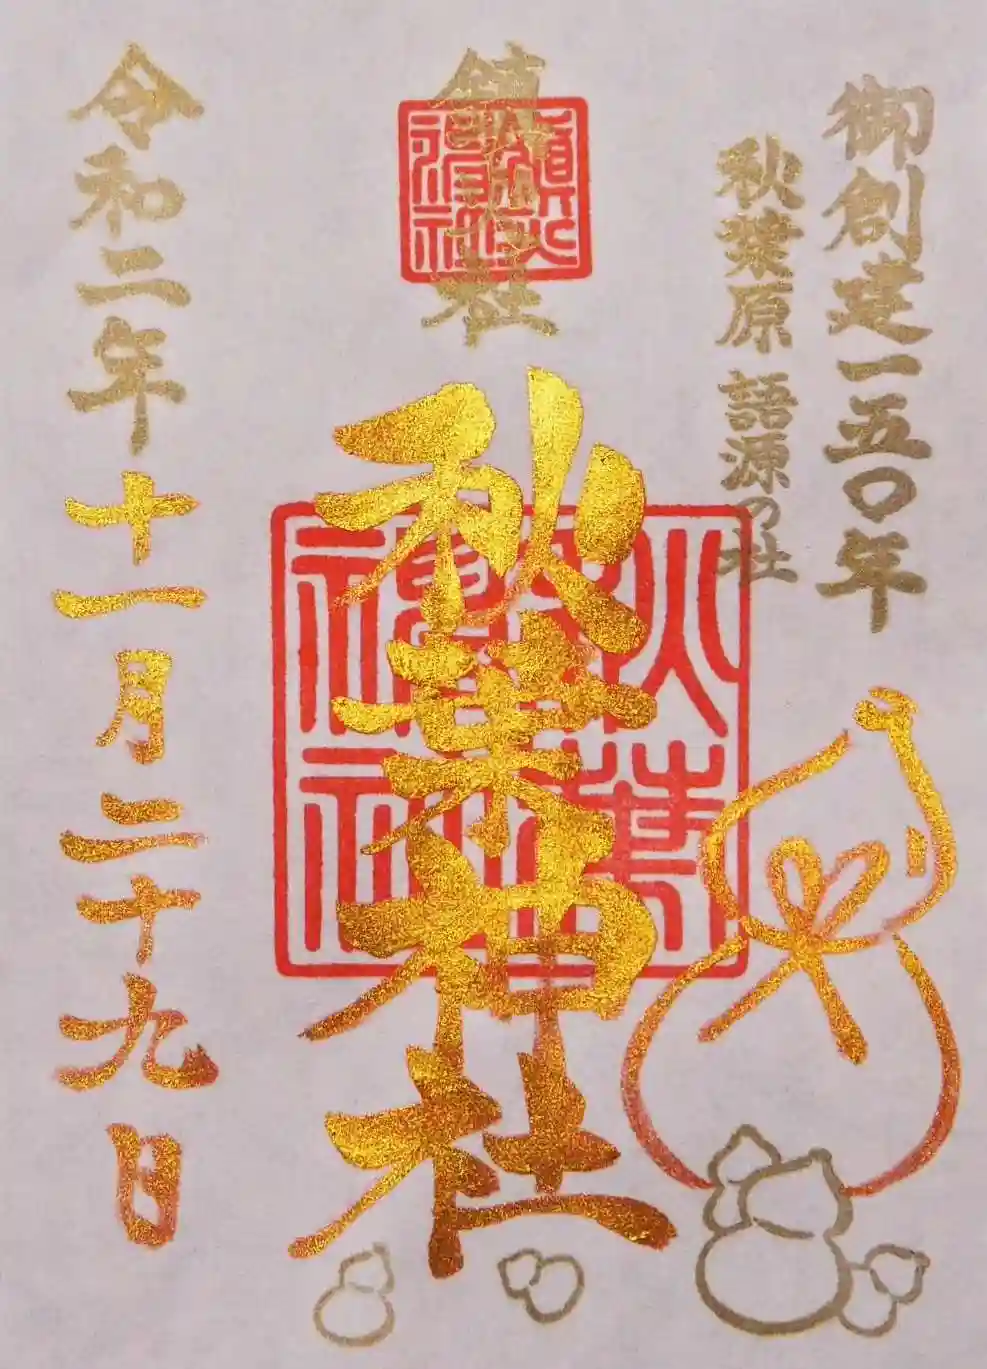 御創建一五〇年
秋葉原 語源の社
鎮火社
秋葉神社
秋葉神社
令和二年十一月二十九日